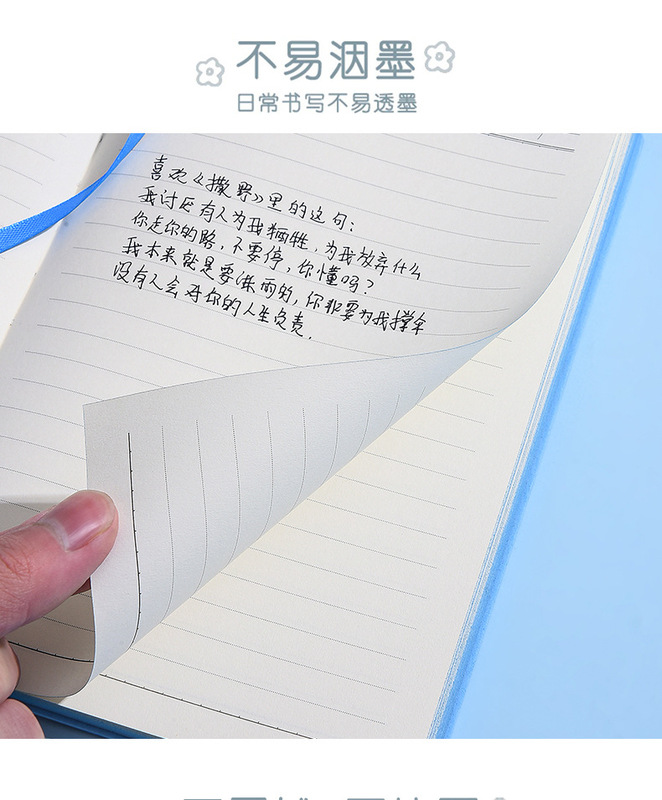 不易洇墨
日常书写不易透墨
喜欢《撒野》里的这句:
我讨厌有人为我牺牲,为我放弃什么
你走你的路,不要停,你懂吗?
我本来就是要淋雨的,你非要为我撑伞
没有人会对你的人生负责.